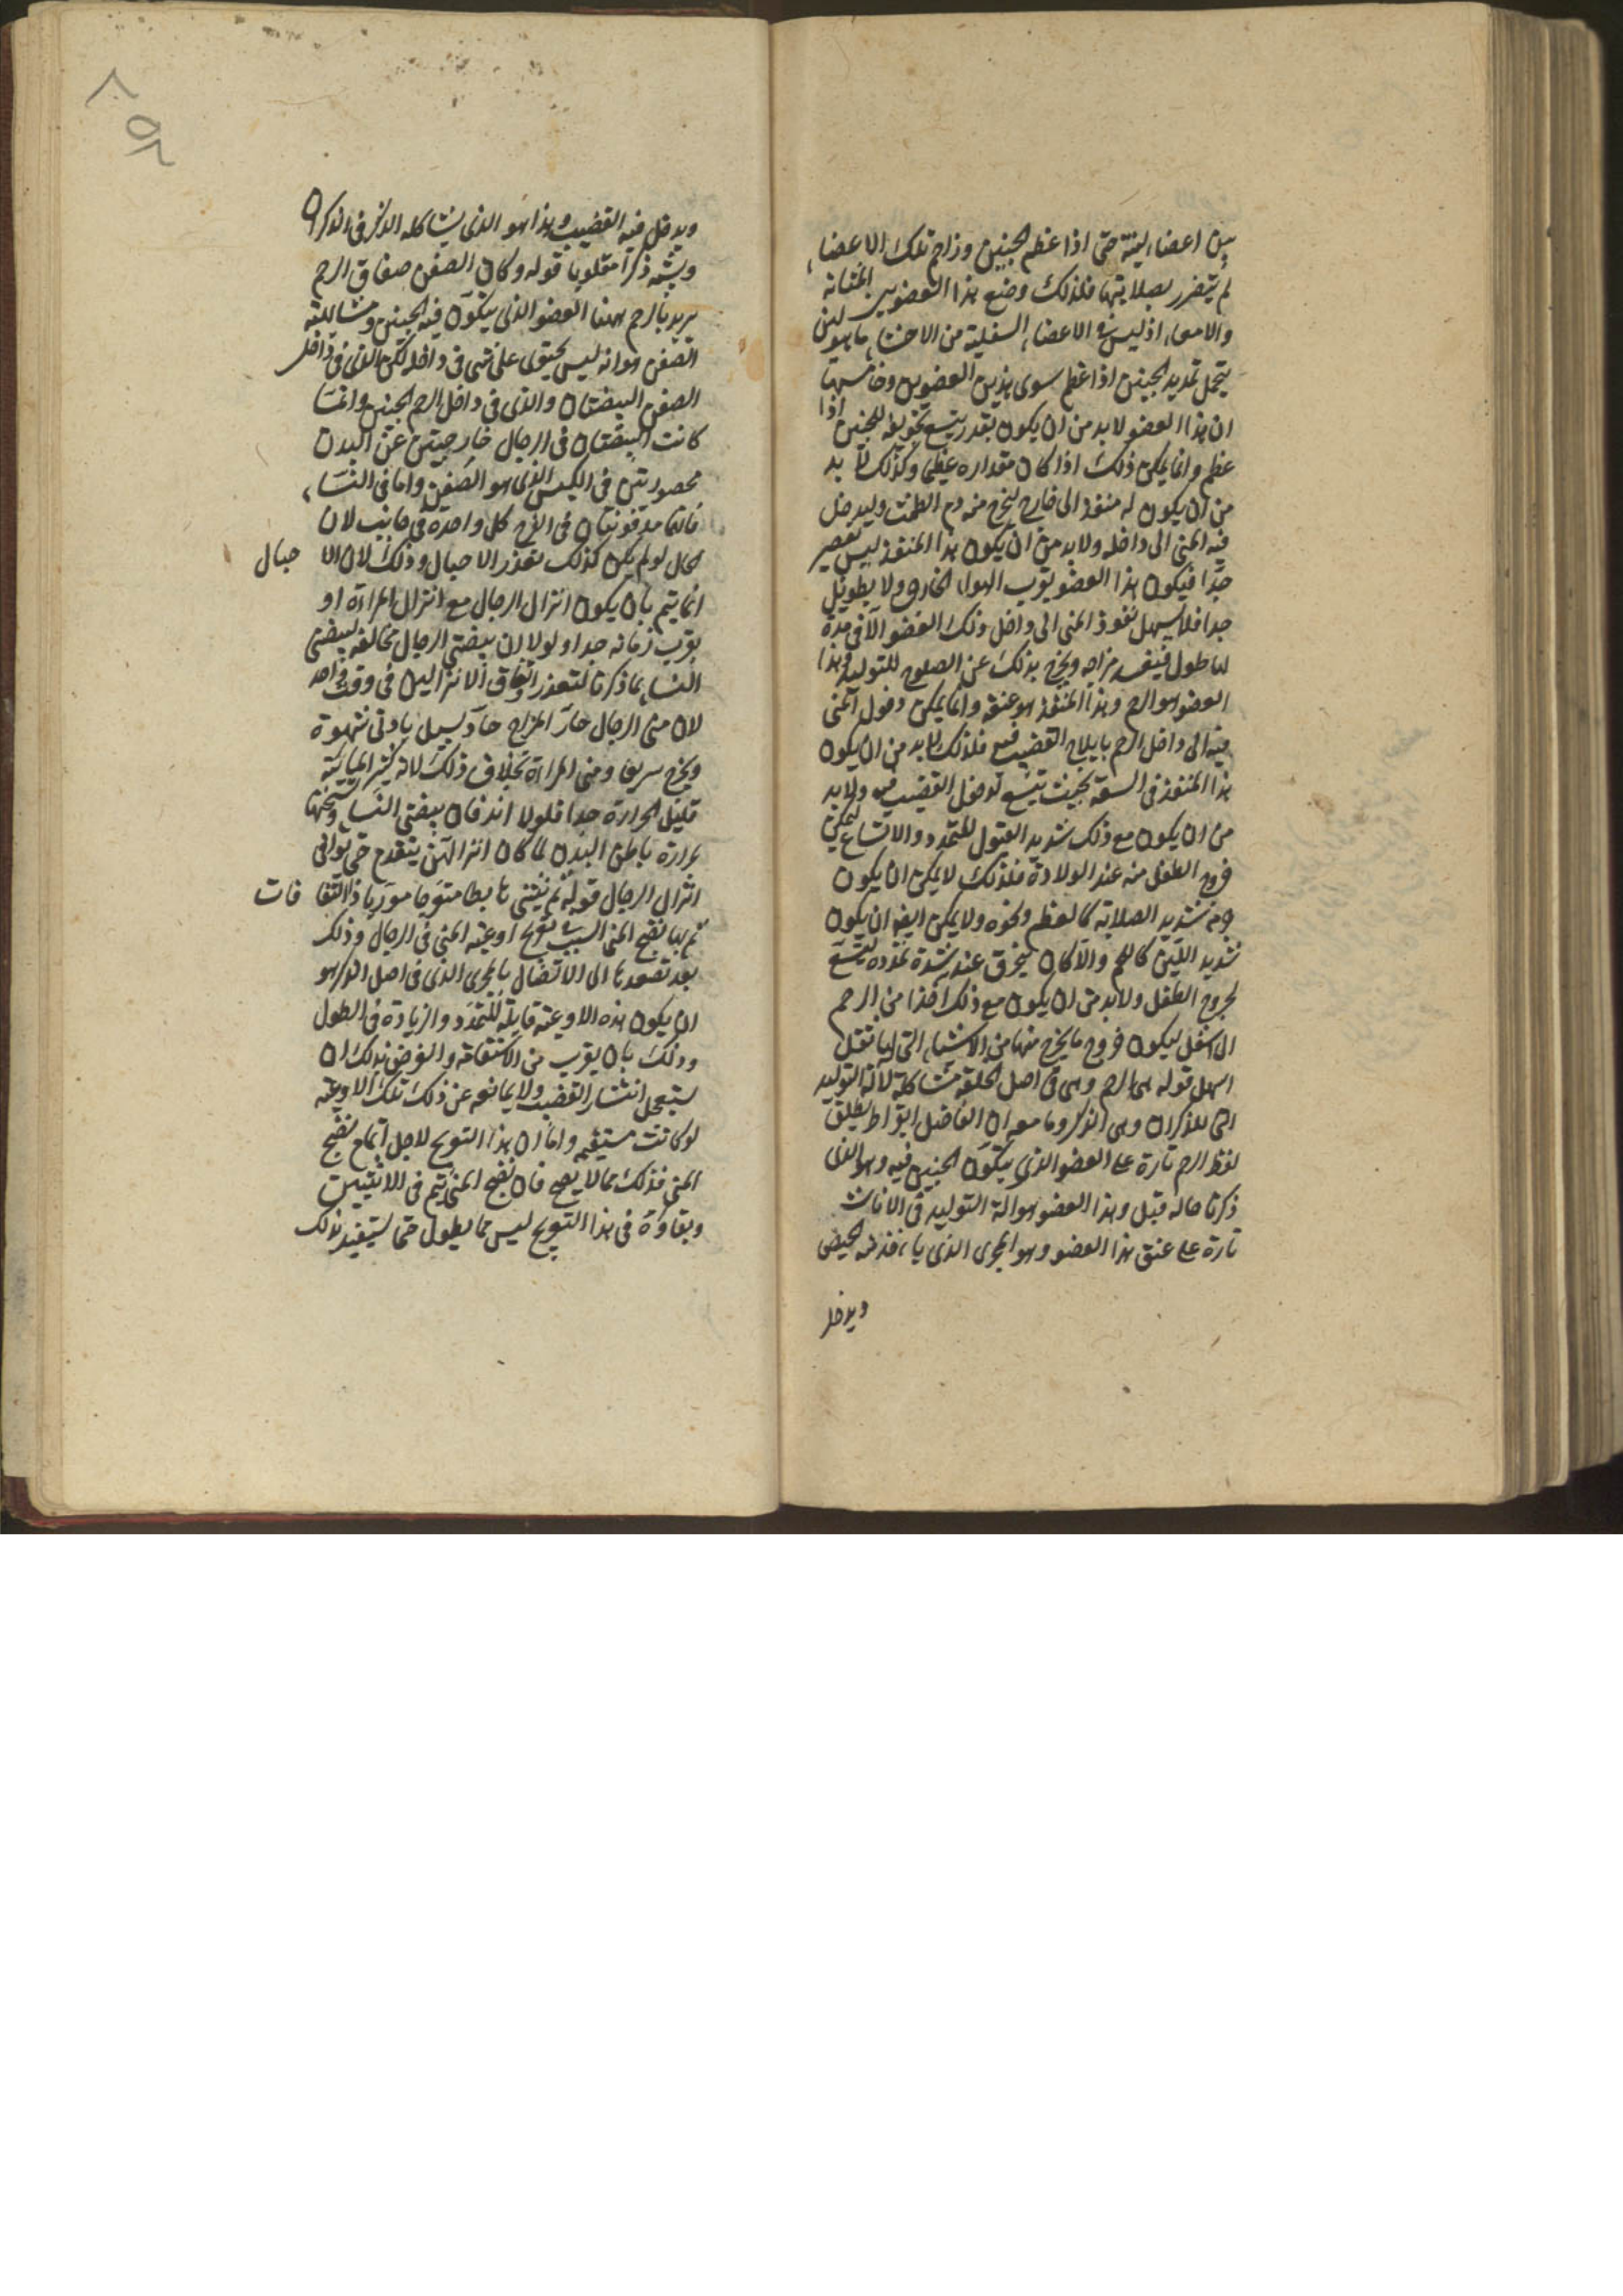 بين اعضاء لينة حتى اذا عظم الجنين وزاحم تلك الاعضاء
لم يتضرر بصلابتها فلذلك وضع هذا العضو بين المثانة
والامعاء اذ ليس فى الاعضاء السفلية من الاحشاء ما هو لين
يتحمل تمديد الجنين اذا عظم سوى هذين العضوين وخامسها
ان هذا العضو لابد من ان يكون بقدر يتسع تجويفه للجنين اذا
عظم وانما يمكن ذلك اذا كان مقداره عظيما وكذلك لابد
من ان يكون له منفذ الى خارج ليخرج منه دم الطمث وليدخل
فيه المنى الى داخله ولابد من ان يكون هذا المنفذ ليس بقصير
جدا فيكون هذا العضو بقرب الهواء الخارج ولا بطويل
جدا فلا يسهل نفوذ المنى الى داخل ذلك العضو الا فى مدة
لها طول فيفسد مزاجه ويخرج بذلك عن الصلوح للتوليد وهذا
العضو هو الرحم وهذا المنفذ هو عنقه وانما يمكن دخول المنى
فيه الى داخل الرحم بايلاج القضيب فيه فلذلك لابد من ان يكون
هذا المنفذ فى السعة بحيث يتسع لدخول القضيب فيه ولابد
من ان يكون مع ذلك شديد القبول للتمدد والاتساع ليمكن
خروج الطفل منه عند الولادة فلذلك لا يمكن ان يكون
جرمه شديد الصلابة كالعظم ونحوه ولا يمكن ايضه ان يكون
شديد اللين كاللحم والا كان ينخرق عند شدة تمدده ليتسع
لخروج الطفل ولابد من ان يكون مع ذلك اخذا من الرحم
الى اسفل ليكون خروج ما يخرج منها من الاشياء التى لها ثقل
اسهل قوله هى الرحم وهى فى اصل الخلقة مشاكلة لآلة التوليد
التى للذكران وهى الذكر وما معه ان الفاضل ابقراط يطلق
لفظ الرحم تارة على العضو الذى يتكون الجنين فيه وهو الذى
ذكرنا حاله قبل وهذا العضو هو الة التوليد فى الاناث
تارة على عنق هذا العضو وهو المجرى الذى ياخذ منه الحيض
ويدخل
ويدخل فيه القضيب وهذا هو الذى يشاكله الذكر فى الذكران
ويشبه ذكرا مقلوبا قوله وكان الصفن صفاق الرحم
يريد بالرحم ههنا العضو الذى يتكون فيه الجنين ومشابهته
الصفن هو انه ليس يحتوى على شى فى داخله لكن الذى فى داخل
الصفن البيضتان والذى فى داخل الرحم الجنين وانما
كانت البيضتان فى الرجال خارجيتين عن البدن
محصورتين فى الكيس الذى هو الصفن واما فى النساء
فانهما مدفونتان فى الفرج كل واحدة فى جانب لان
الحال لو لم يكن كذلك لتعذر الاحبال وذلك لان الا حبال
انما يتم بان يكون انزال الرجال مع انزال المراة او
بقرب زمانه جدا ولولا ان بيضتى الرجال مخالفة لبيضتى
النساء بما ذكرنا لتعذر اتفاق الانزالين فى وقت واحد
لان منى الرجال حار المزاج حاد يسيل بادنى شهوة
ويخرج سريعا ومنى المراة بخلاف ذلك لانه كثير المايية
قليل الحرارة جدا فلولا اندفان بيضتى النساء وتسخنها
بحرارة باطن البدن لما كان انزالهن يتقدم حتى يوافى
انزال الرجال قوله ثم ينثنى هابطا متوجا موربا ذا التفا فات
ثم بها نضج المنى السبب تعويج اوعية المنى فى الرجال وذلك
بعد تصعدها الى الاتصال بالمجرى الذى فى اصل الذكر هو
ان يكون هذه الاوعية قابلة للتمدد والزيادة فى الطول
وذلك بان يقرب من الاستقامة والغرض بذلك ان
يستعجل انتشار القضيب ولا يمانعه عن ذلك تلك الاوعية
لو كانت مستقيمه واما ان هذا التعويج لاجل اتمام نضج
المنى فذلك مما لا يصح فان نضج المنى يتم فى الانثيين
وبقاؤه فى هذا التعويج ليس مما يطول حتى يستفيد بذلك